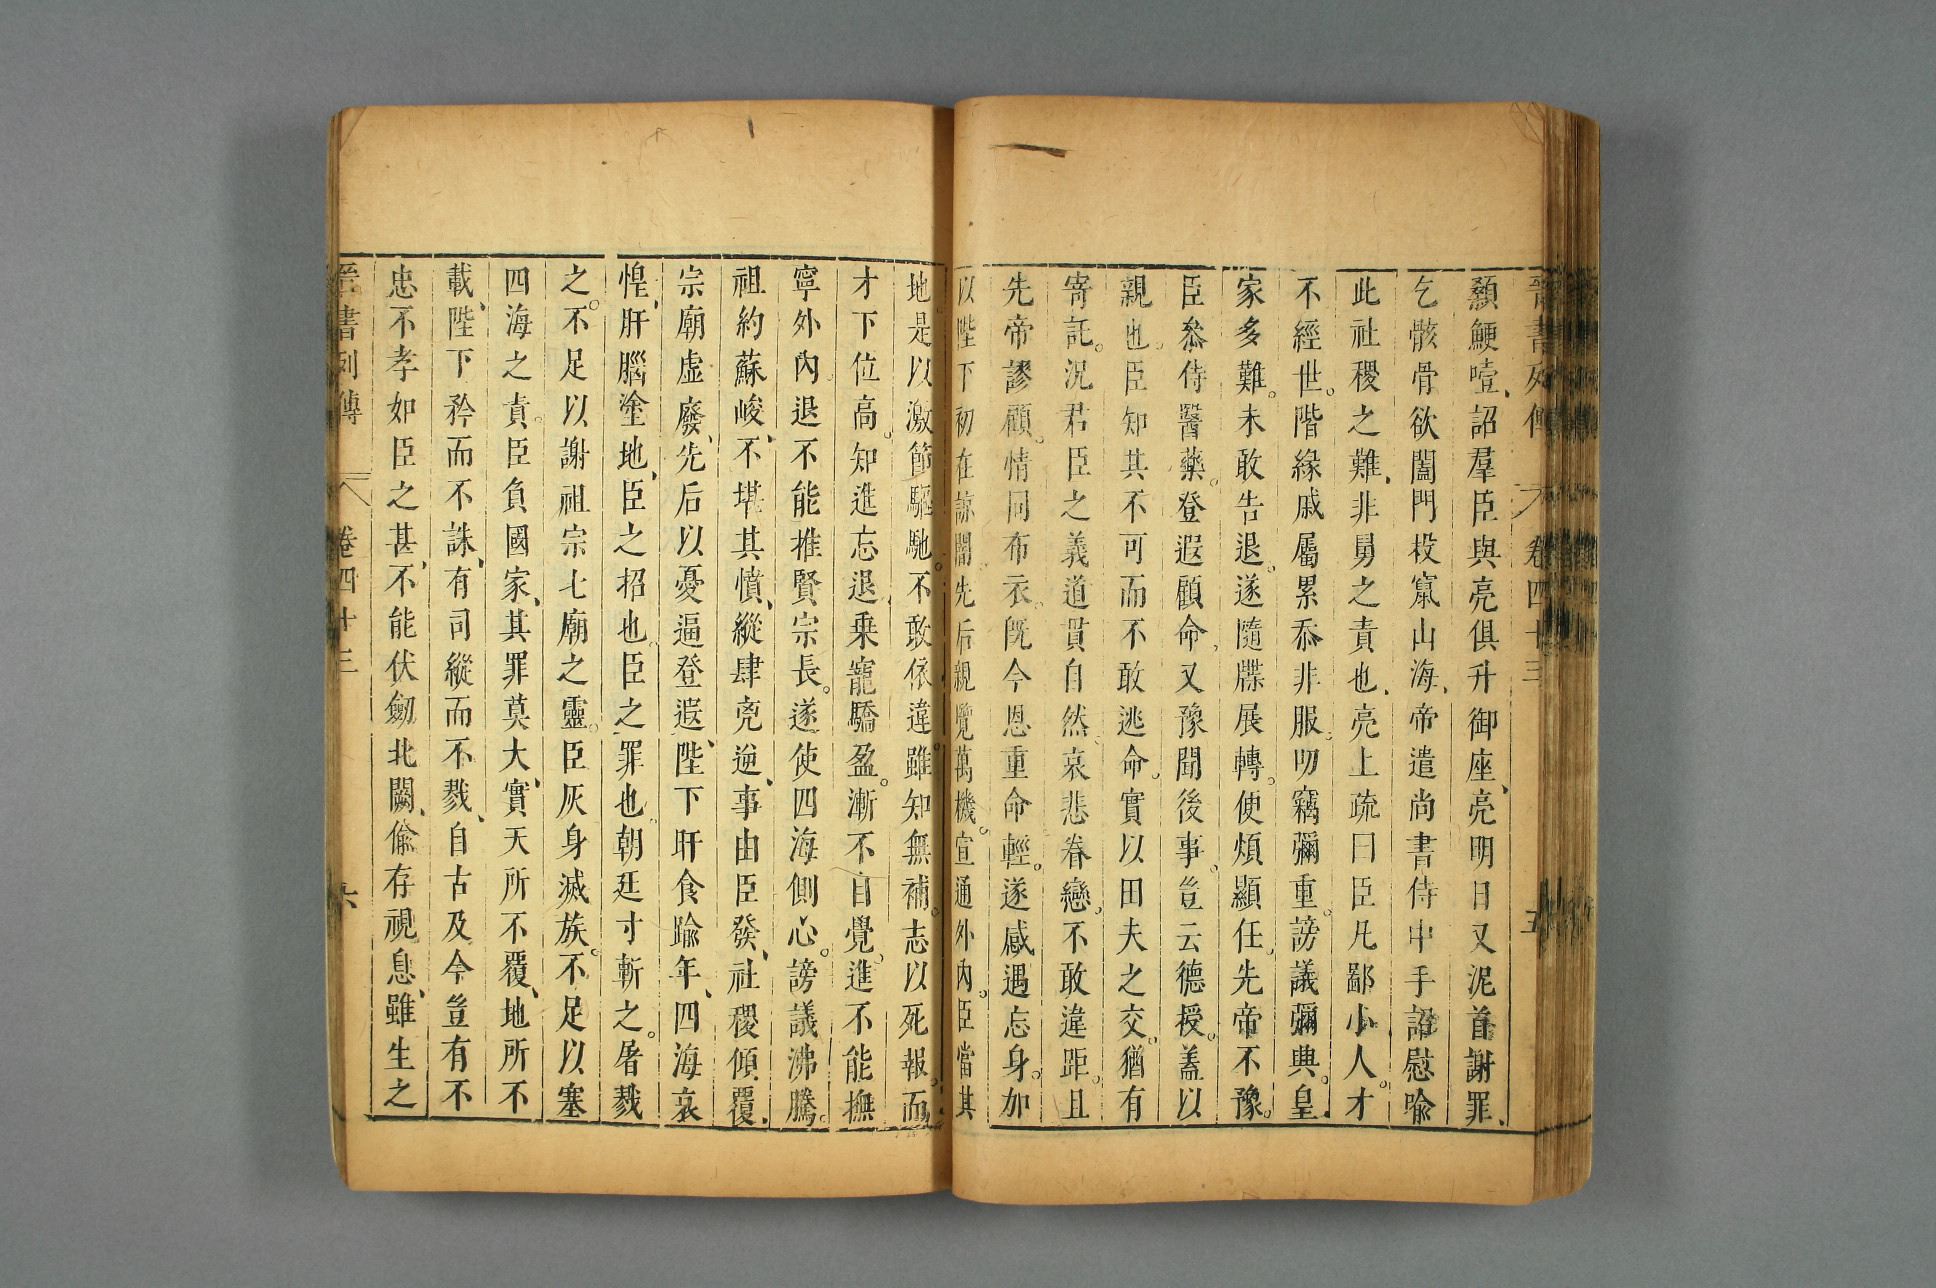 晉書列傳 卷四十三 五
顙鯁噎、詔羣臣與亮俱升御座、亮明日又泥首謝罪、
乞骸骨欲闔門投竄山海、帝遣尚書侍中手詔慰喩
此社稷之難、非舅之責也、亮上疏曰臣凡鄙小人。才
不經世。階緣戚屬累忝非服。叨竊彌重。謗議彌興。皇
家多難。未敢告退。遂隨牒展轉。便煩顯任。先帝不豫。
臣叅侍醫藥。登遐顧命、又豫聞後事、豈云德授。蓋以
親也。臣知其不可而不敢逃命。實以田夫之交。猶有
寄託。況君臣之義道貫自然。哀悲眷戀。不敢違距。且
先帝謬顧。情同布衣。旣今恩重命輕。遂感遇忘身。加
以陛下初在諒闇。先后親覽萬機。宣通外內。臣當其
地。是以激節驅馳。不敢依違。雖知無補。志以死報。而
才下位高。知進忘退、乗寵驕盈。漸不自覺。進不能撫
寧外內。退不能推賢宗長。遂使四海側心。謗議沸騰。
祖約蘇峻、不堪其憤、縱肆兇逆、事由臣發、社稷傾覆、
宗廟虛廢、先后以憂逼登遐、陛下旰食踰年、四海哀
惶、肝腦塗地、臣之招也。臣之罪也。朝廷寸斬之。屠戮
之。不足以謝祖宗七廟之靈。臣灰身滅族。不足以塞
四海之責。臣負國家、其罪莫大、實天所不覆、地所不
載、陛下矜而不誅、有司縱而不戮、自古及今豈有不
忠不孝如臣之甚、不能伏劒北闕、偸存視息、雖生之
晉書列傳 卷四十三 六